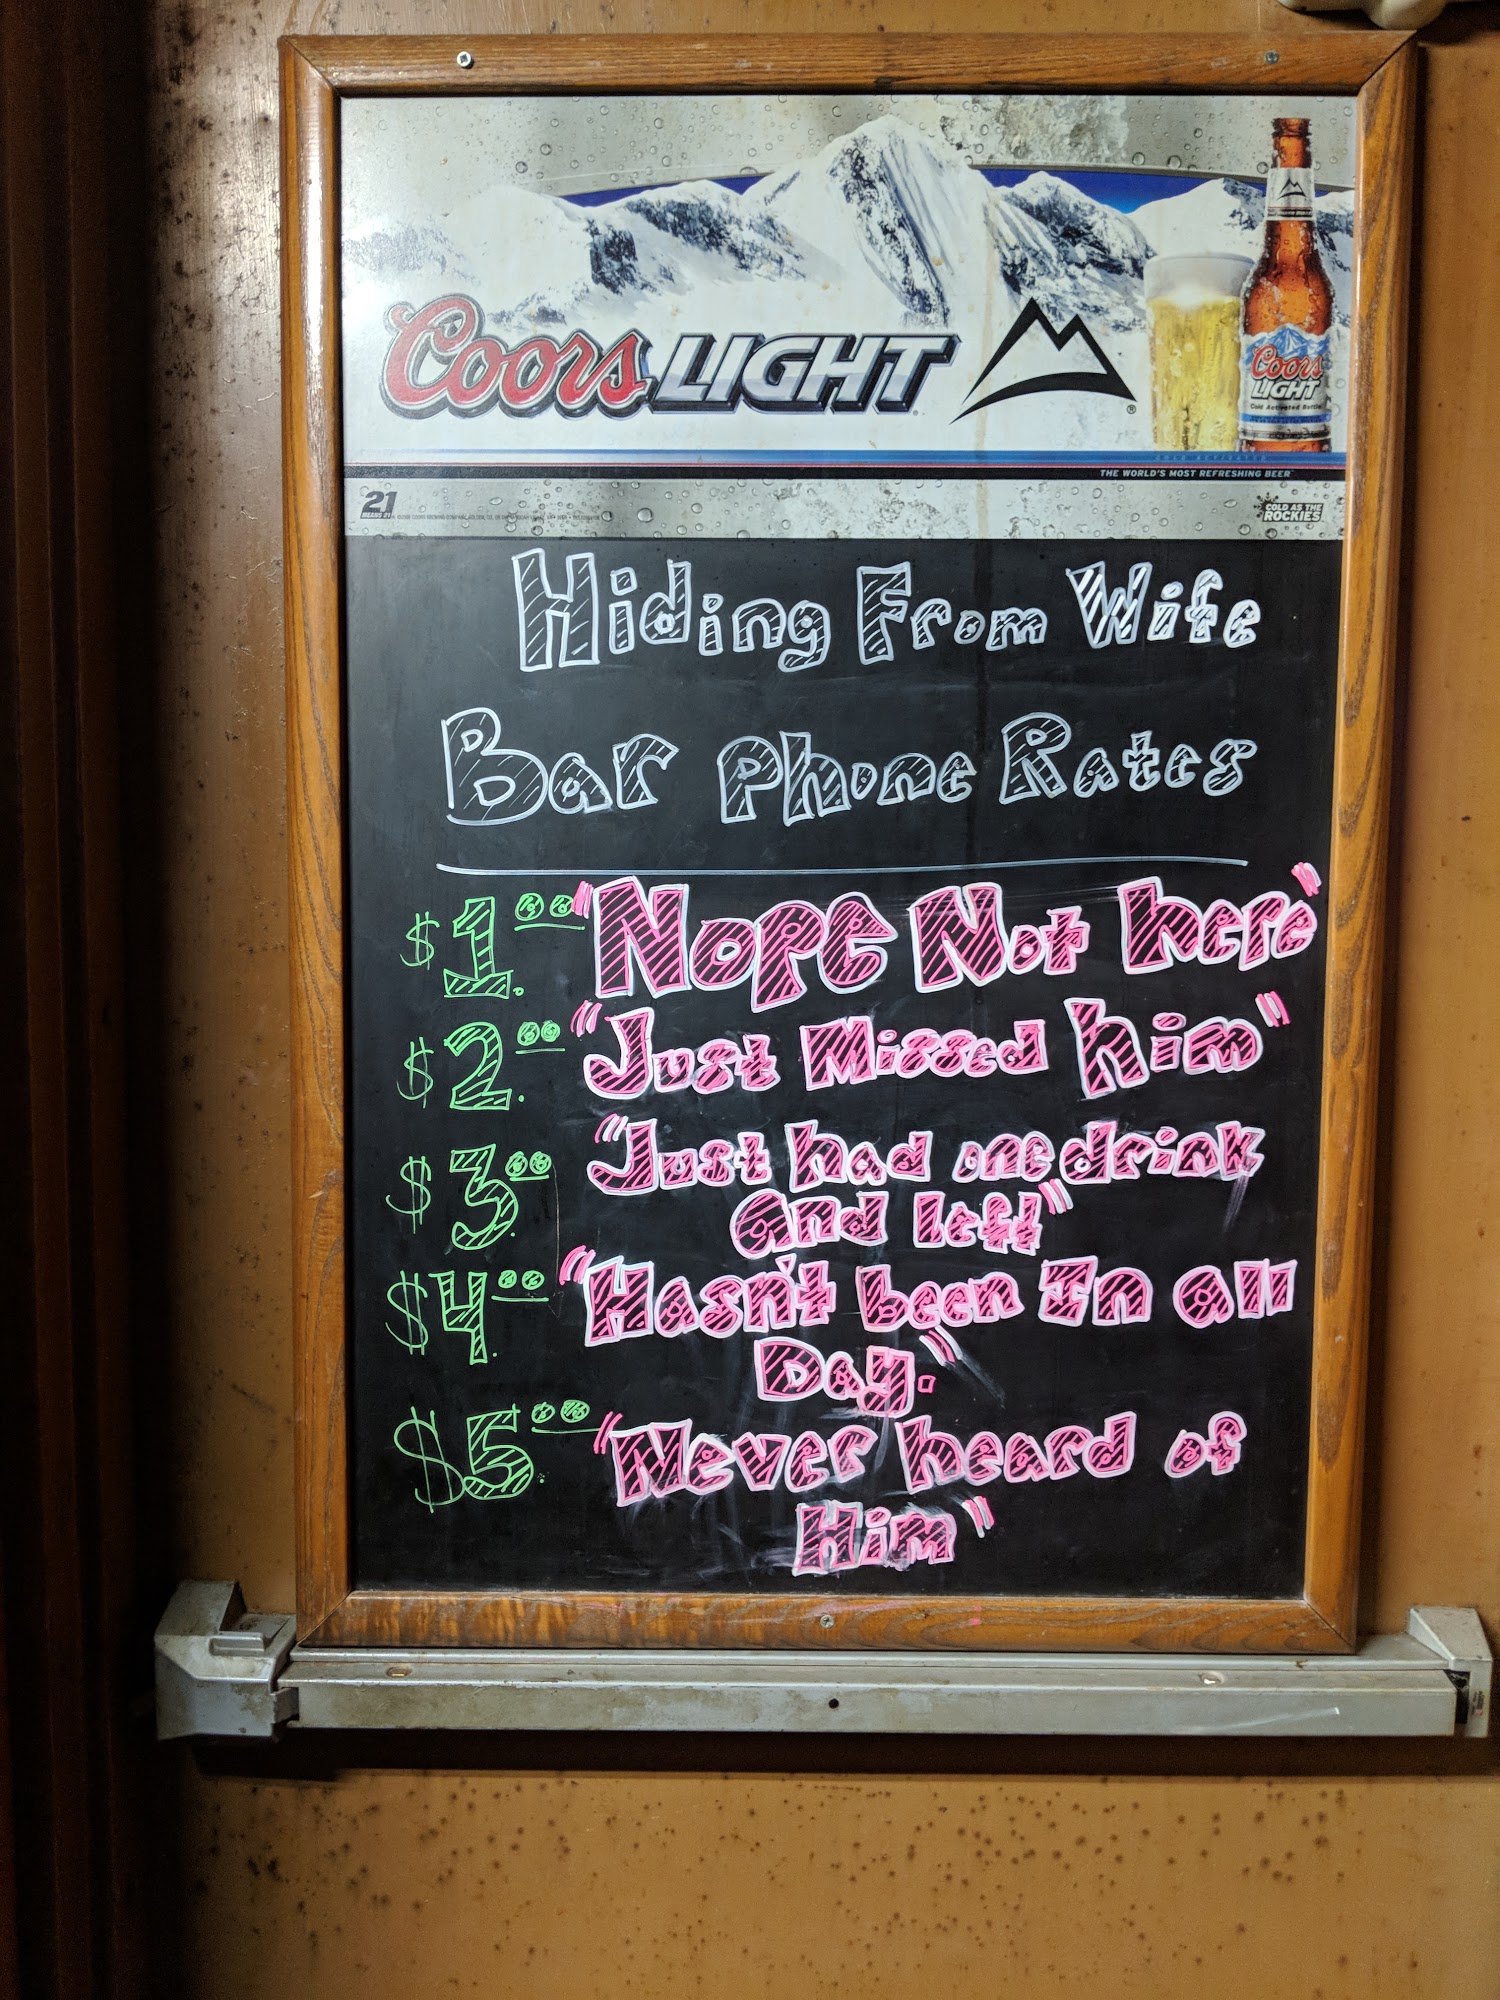 Coors LIGHT
Coors
LIGHT
Cold Activated Bottle
THE WORLD'S MOST REFRESHING BEER
21
MEANS 21
COLD AS THE
ROCKIES
Hiding From Wife
Bar Phone Rates
$1.00 "Nope Not here"
$2.00 "Just Missed him"
$3.00 "Just had one drink
and left"
$4.00 "Hasn't been In all
Day."
$5.00 "Never heard of
Him"